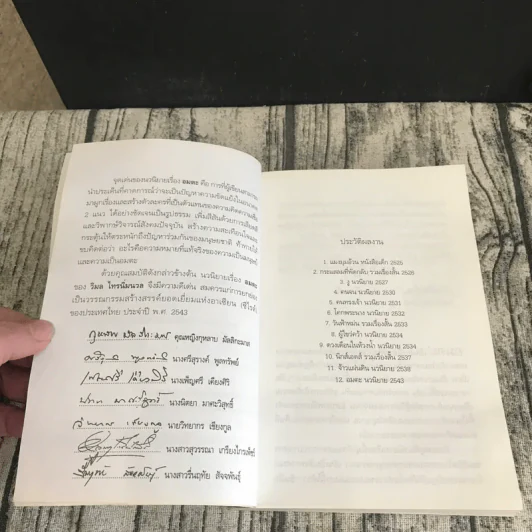 จุดเด่นของนวนิยายเรื่อง อมตะ คือ การที่ผู้เขียน
นำประเด็นที่คาดการณ์ว่าจะเป็นปัญหาความขัดแย้งใน
มาผูกเรื่องและสร้างตัวละครที่เป็นตัวแทนของความคิดความเชื่อ
2 แนว ได้อย่างชัดเจนเป็นรูปธรรม เพิ่มสีสันด้วยการเสียดสี
และวิพากษ์วิจารณ์สังคมปัจจุบัน สร้างความสะเทือนใจและ
กระตุ้นให้ตระหนักถึงปัญหาร่วมกันของมนุษยชาติ ท้าทายให้
ขบคิดต่อว่า อะไรคือความหมายที่แท้จริงของความเป็นมนุษย์
และความเป็นอมตะ
ด้วยคุณสมบัติดังกล่าวข้างต้น นวนิยายเรื่อง อมตะ
ของ วิมล ไทรนิ่มนวล จึงมีความดีเด่น สมควรแก่การยกย่อง
เป็นวรรณกรรมสร้างสรรค์ยอดเยี่ยมแห่งอาเซียน (ซีไรต์)
ของประเทศไทย ประจำปี พ.ศ. 2543
คุณหญิงกุหลาบ มัลลิกะมาส
นางตรีสุรางค์ พูลทรัพย์
นางเพ็ญศรี เคียงศิริ
นางนิตยา มาศะวิสุทธิ์
นายวิทยากร เชียงกูล
นางสาวสุวรรณา เกรียงไกรเพ็ชร์
นางสาวรื่นฤทัย สัจจพันธุ์
ประวัติผลงาน
1. แมงมุมอ้วน หนังสือเด็ก 2525
2. กระแสลมที่พัดกลับ รวมเรื่องสั้น 2526
3. งู นวนิยาย 2527
4. คนจน นวนิยาย 2530
5. คนทรงเจ้า นวนิยาย 2531
6. โคกพระนาง นวนิยาย 2532
7. วันฟ้าหม่น รวมเรื่องสั้น 2533
8. ผู้ไขว่คว้า นวนิยาย 2534
9. ดวงเดือนในห้วงน้ำ นวนิยาย 2534
10. นิกส์แอคส์ รวมเรื่องสั้น 2537
11. จ้าวแผ่นดิน นวนิยาย 2538
12. อมตะ นวนิยาย 2543